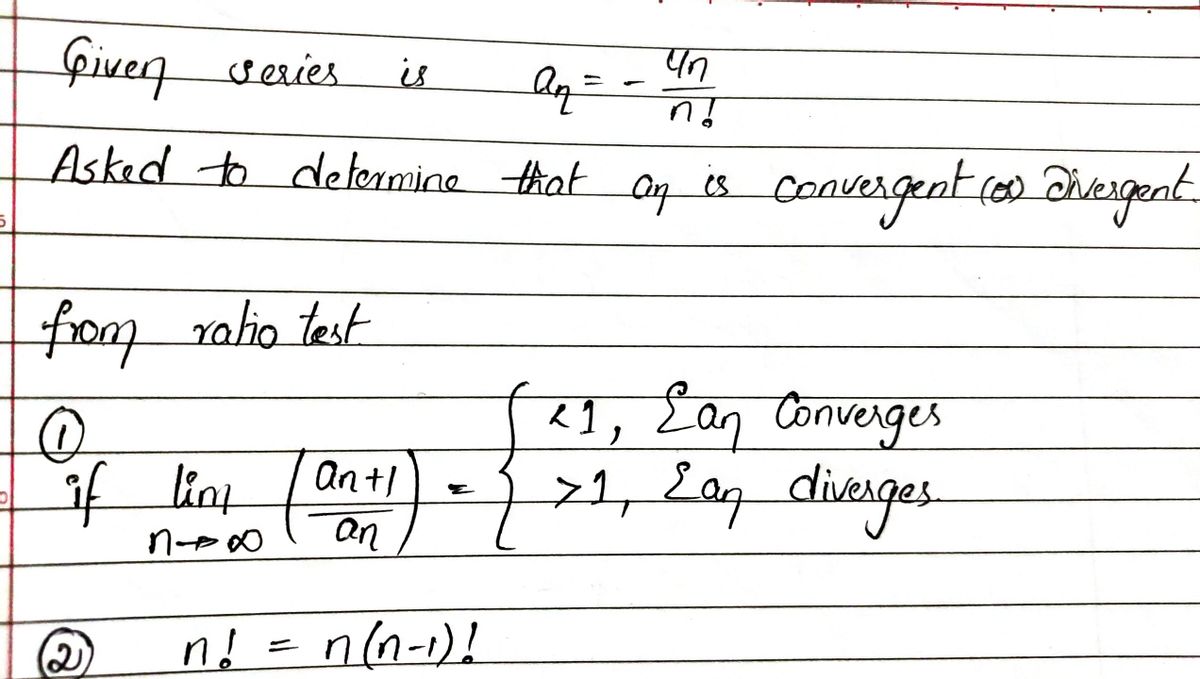 Given series is an = - 4n/n!
Asked to determine that an is convergent (or) Divergent.
from ratio test
①
if lim n→∞ (an+1/an) = { <1, Σan Converges
>1, Σan diverges.
② n! = n(n-1)!